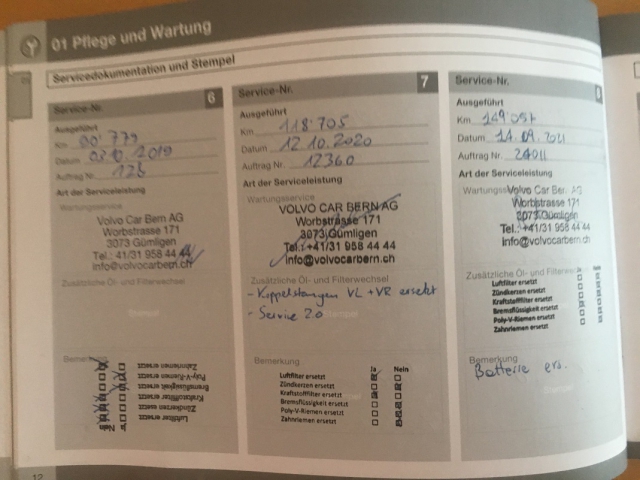 01 Pflege und Wartung
Servicedokumentation und Stempel
Service-Nr. 6
Ausgeführt
Km 90'779
Datum 03.10.2019
Auftrag Nr. 126
Art der Serviceleistung
Wartungsservice
Volvo Car Bern AG
Worbstrasse 171
3073 Gümligen
Tel. 41/31 958 44 44
info@volvocarbern.ch
Zusätzliche Öl- und Filterwechsel
Stempel
Bemerkung
Luftfilter ersetzt
Zündkerzen ersetzt
Kraftstofffilter ersetzt
Bremsflüssigkeit ersetzt
Poly-V-Riemen ersetzt
Zahnriemen ersetzt
Ja Nein
Service-Nr. 7
Ausgeführt
Km 118'705
Datum 12.10.2020
Auftrag Nr. 12360
Art der Serviceleistung
Wartungsservice
VOLVO CAR BERN AG
Worbstrasse 171
3073 Gümligen
Tel. +41/31 958 44 44
info@volvocarbern.ch
Zusätzliche Öl- und Filterwechsel
- Koppelstangen VL + VR ersetzt
- Service 2.0
Stempel
Bemerkung
Ja Nein
Luftfilter ersetzt
Zündkerzen ersetzt
Kraftstofffilter ersetzt
Bremsflüssigkeit ersetzt
Poly-V-Riemen ersetzt
Zahnriemen ersetzt
Service-Nr. 8
Ausgeführt
Km 149'057
Datum 14.09.2021
Auftrag Nr. 24011
Art der Serviceleistung
Wartungsservice
Volvo Car Bern AG
Worbstrasse 171
3073 Gümligen
Tel. +41/31 958 44 44
info@volvocarbern.ch
Zusätzliche Öl- und Filterwechsel
Luftfilter ersetzt
Zündkerzen ersetzt
Kraftstofffilter ersetzt
Bremsflüssigkeit ersetzt
Poly-V-Riemen ersetzt
Zahnriemen ersetzt
Bemerkung
Batterie ers.
Stempel
12